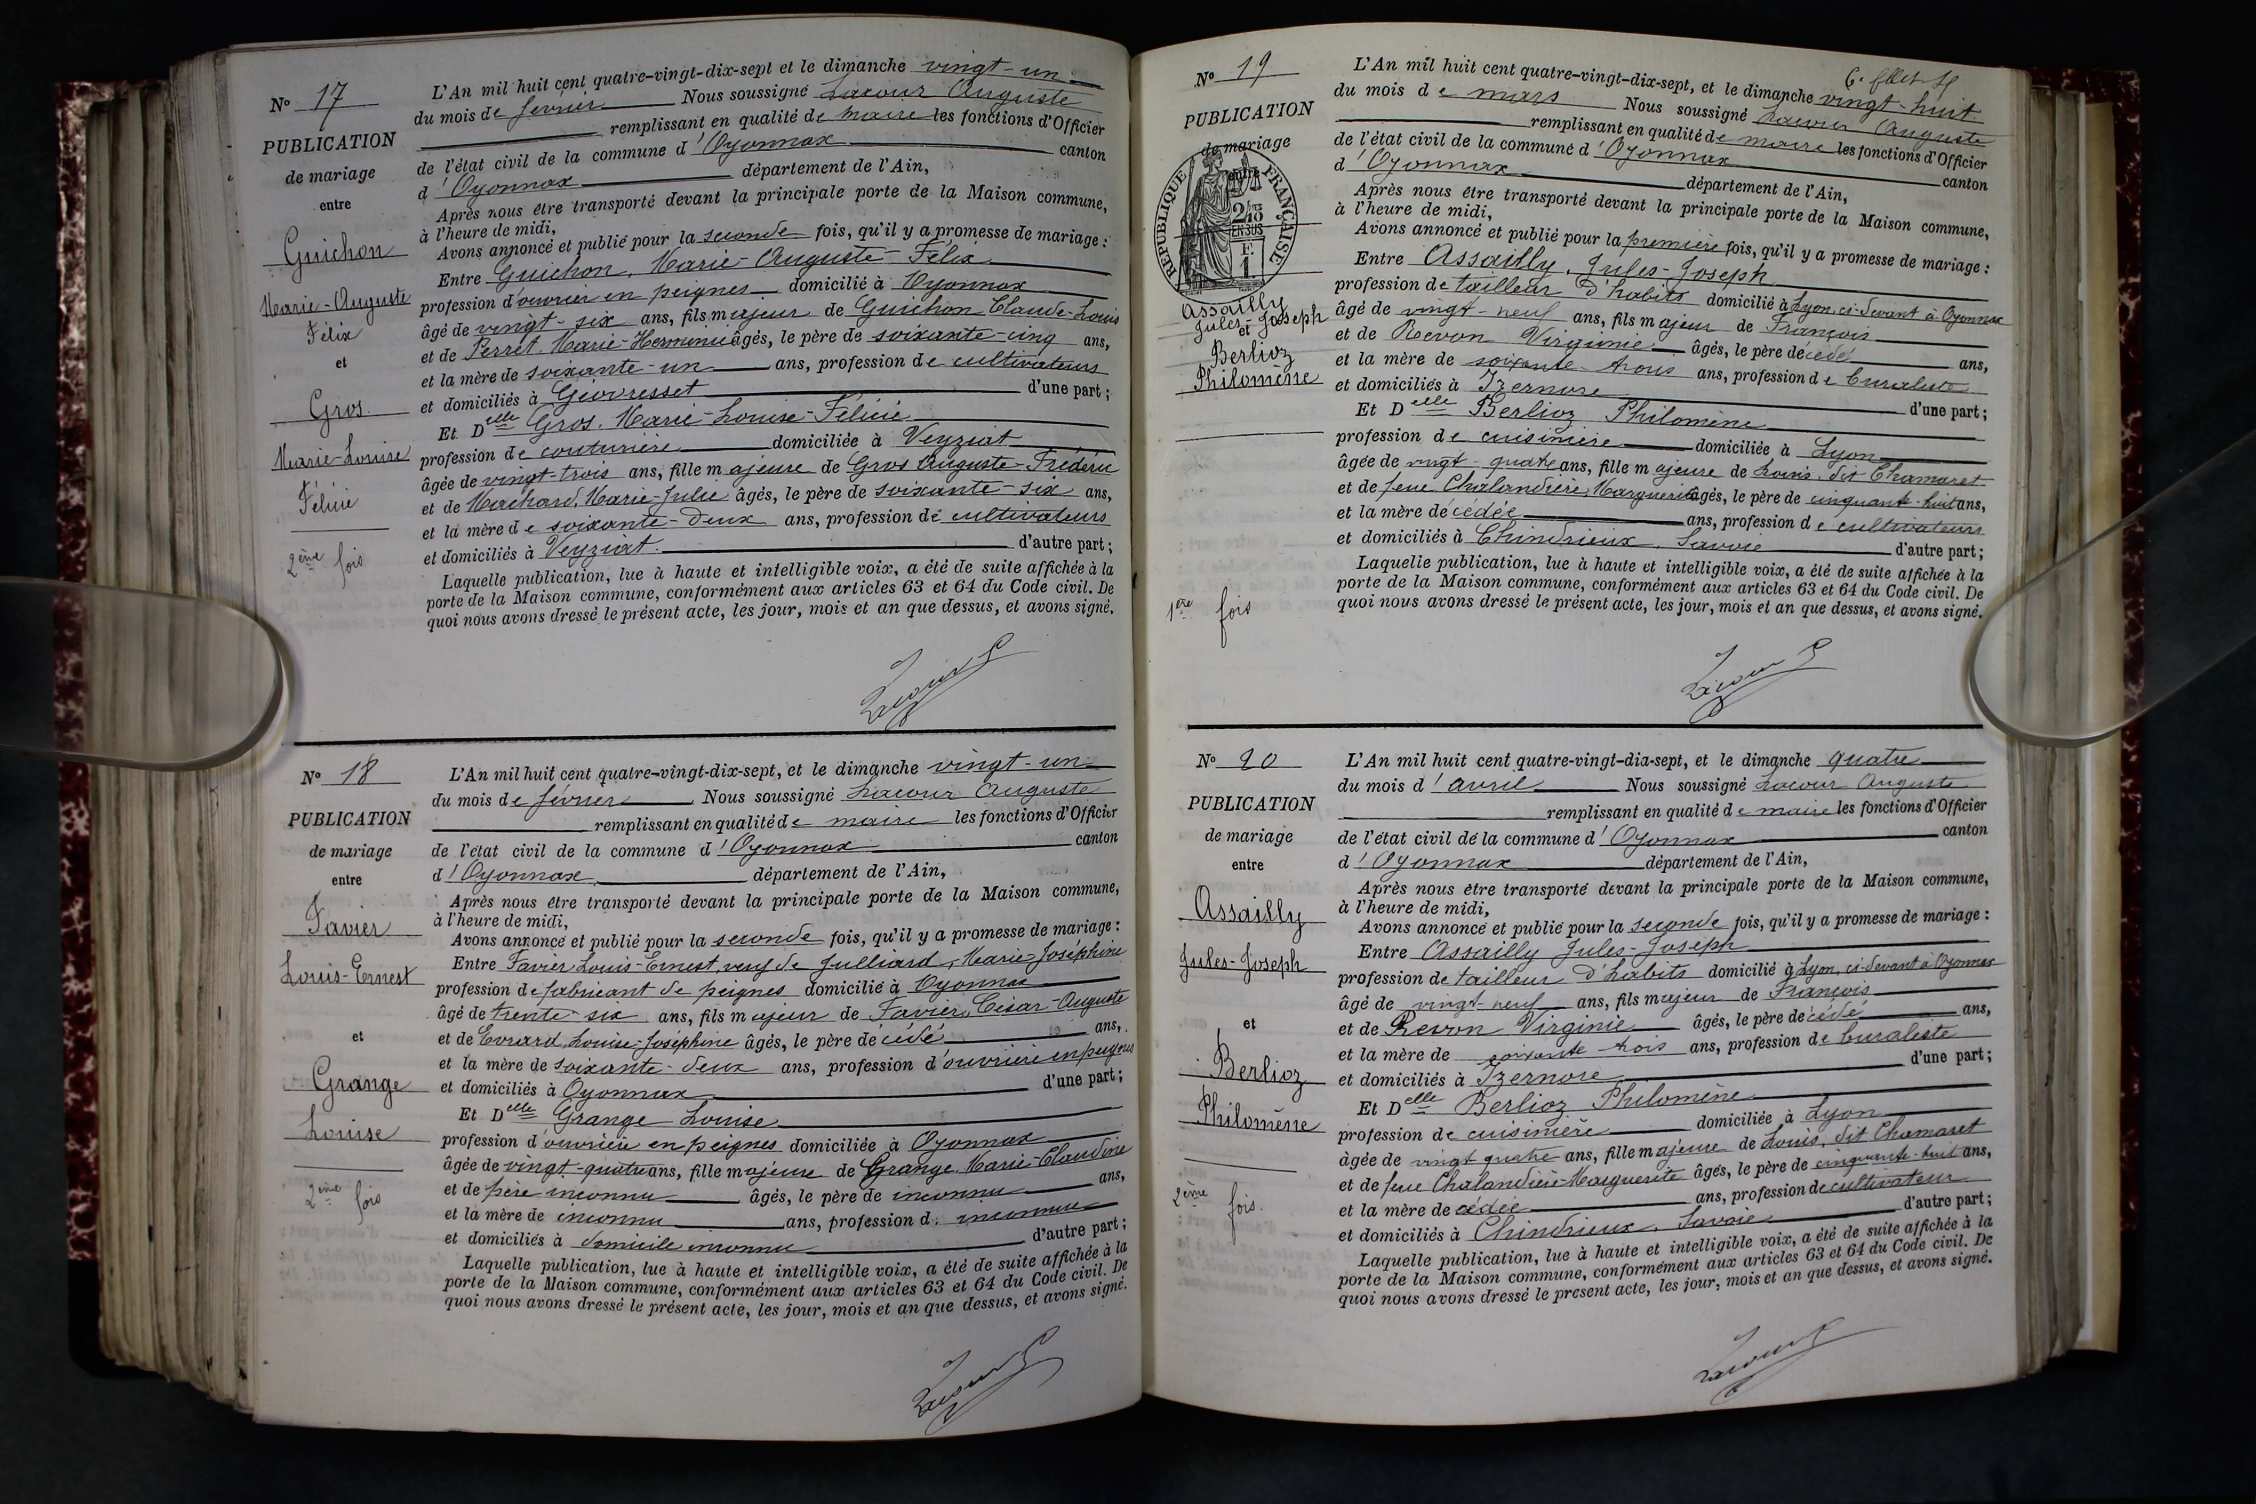 N° 17
PUBLICATION
de mariage
entre
Guichon
Marie-Auguste
Félix
et
Gros
Marie-Louise
Félicie
2ème fois
L'An mil huit cent quatre-vingt-dix-sept et le dimanche vingt-un
du mois de février Nous soussigné Lacour Auguste
remplissant en qualité de maire les fonctions d'Officier
de l'état civil de la commune d'Oyonnax canton
d'Oyonnax département de l'Ain,
Après nous être transporté devant la principale porte de la Maison commune,
à l'heure de midi,
Avons annoncé et publié pour la seconde fois, qu'il y a promesse de mariage :
Entre Guichon, Marie-Auguste-Félix
profession d'ouvrier en peignes domicilié à Oyonnax
âgé de vingt-six ans, fils majeur de Guichon Claude-Louis
et de Perret Marie-Herminie âgés, le père de soixante-cinq ans,
et la mère de soixante-un ans, profession de cultivateurs
et domiciliés à Géovresset d'une part ;
Et Delle Gros, Marie-Louise-Félicie
profession de couturière domiciliée à Veyziat
âgée de vingt-trois ans, fille majeure de Gros Auguste-Frédéric
et de Machard, Marie-Julie âgés, le père de soixante-six ans,
et la mère de soixante-deux ans, profession de cultivateurs
et domiciliés à Veyziat d'autre part ;
Laquelle publication, lue à haute et intelligible voix, a été de suite affichée à la
porte de la Maison commune, conformément aux articles 63 et 64 du Code civil. De
quoi nous avons dressé le présent acte, les jour, mois et an que dessus, et avons signé.
Lacour
N° 18
PUBLICATION
de mariage
entre
Favier
Louis-Ernest
et
Grange
Louise
2ème fois
L'An mil huit cent quatre-vingt-dix-sept, et le dimanche vingt-un
du mois de février Nous soussigné Lacour Auguste
remplissant en qualité de maire les fonctions d'Officier
de l'état civil de la commune d'Oyonnax canton
d'Oyonnax département de l'Ain,
Après nous être transporté devant la principale porte de la Maison commune,
à l'heure de midi,
Avons annoncé et publié pour la seconde fois, qu'il y a promesse de mariage :
Entre Favier Louis-Ernest, veuf de Julliard, Marie-Joséphine
profession de fabricant de peignes domicilié à Oyonnax
âgé de trente-six ans, fils majeur de Favier, César-Auguste
et de Evrard, Louise-Joséphine âgés, le père décédé ans,
et la mère de soixante-deux ans, profession d'ouvrière en peignes
et domiciliés à Oyonnax d'une part ;
Et Delle Grange Louise
profession d'ouvrière en peignes domiciliée à Oyonnax
âgée de vingt-quatre ans, fille majeure de Grange, Marie-Claudine
et de père inconnu âgés, le père de inconnu ans,
et la mère de inconnu ans, profession d. inconnue
et domiciliés à domicile inconnu d'autre part ;
Laquelle publication, lue à haute et intelligible voix, a été de suite affichée à la
porte de la Maison commune, conformément aux articles 63 et 64 du Code civil. De
quoi nous avons dressé le présent acte, les jour, mois et an que dessus, et avons signé.
Lacour
N° 19
PUBLICATION
de mariage
entre
RÉPUBLIQUE FRANÇAISE
2/10
EN SUS
E.
1
Assailly
Jules-Joseph
et
Berlioz
Philomène
1ère fois
L'An mil huit cent quatre-vingt-dix-sept, et le dimanche vingt-huit
du mois de mars Nous soussigné Lacour Auguste
remplissant en qualité de maire les fonctions d'Officier
de l'état civil de la commune d'Oyonnax canton
d'Oyonnax département de l'Ain,
Après nous être transporté devant la principale porte de la Maison commune,
à l'heure de midi,
Avons annoncé et publié pour la première fois, qu'il y a promesse de mariage :
Entre Assailly, Jules-Joseph
profession de tailleur d'habits domicilié à Lyon, ci-devant à Oyonnax
âgé de vingt-neuf ans, fils majeur de François
et de Revon Virginie âgés, le père décédé ans,
et la mère de soixante-trois ans, profession de buraliste
et domiciliés à Izernore d'une part ;
Et Delle Berlioz Philomène
profession de cuisinière domiciliée à Lyon
âgée de vingt-quatre ans, fille majeure de Louis, dit Chamaret
et de feue Chalandière, Marguerite âgés, le père de cinquante-huit ans,
et la mère décédée ans, profession de cultivateurs
et domiciliés à Chindrieux, Savoie d'autre part ;
Laquelle publication, lue à haute et intelligible voix, a été de suite affichée à la
porte de la Maison commune, conformément aux articles 63 et 64 du Code civil. De
quoi nous avons dressé le présent acte, les jour, mois et an que dessus, et avons signé.
Lacour
N° 20
PUBLICATION
de mariage
entre
Assailly
Jules-Joseph
et
Berlioz
Philomène
2ème fois.
L'An mil huit cent quatre-vingt-dix-sept, et le dimanche quatre
du mois d'avril Nous soussigné Lacour Auguste
remplissant en qualité de maire les fonctions d'Officier
de l'état civil de la commune d'Oyonnax canton
d'Oyonnax département de l'Ain,
Après nous être transporté devant la principale porte de la Maison commune,
à l'heure de midi,
Avons annoncé et publié pour la seconde fois, qu'il y a promesse de mariage :
Entre Assailly Jules-Joseph
profession de tailleur d'habits domicilié à Lyon, ci-devant à Oyonnax
âgé de vingt-neuf ans, fils majeur de François
et de Revon Virginie âgés, le père décédé ans,
et la mère de soixante-trois ans, profession de buraliste
et domiciliés à Izernore d'une part ;
Et Delle Berlioz Philomène
profession de cuisinière domiciliée à Lyon
âgée de vingt quatre ans, fille majeure de Louis, dit Chamaret
et de feue Chalandière Marguerite âgés, le père de cinquante-huit ans,
et la mère décédée ans, profession de cultivateur
et domiciliés à Chindrieux, Savoie d'autre part ;
Laquelle publication, lue à haute et intelligible voix, a été de suite affichée à la
porte de la Maison commune, conformément aux articles 63 et 64 du Code civil. De
quoi nous avons dressé le présent acte, les jour, mois et an que dessus, et avons signé.
Lacour